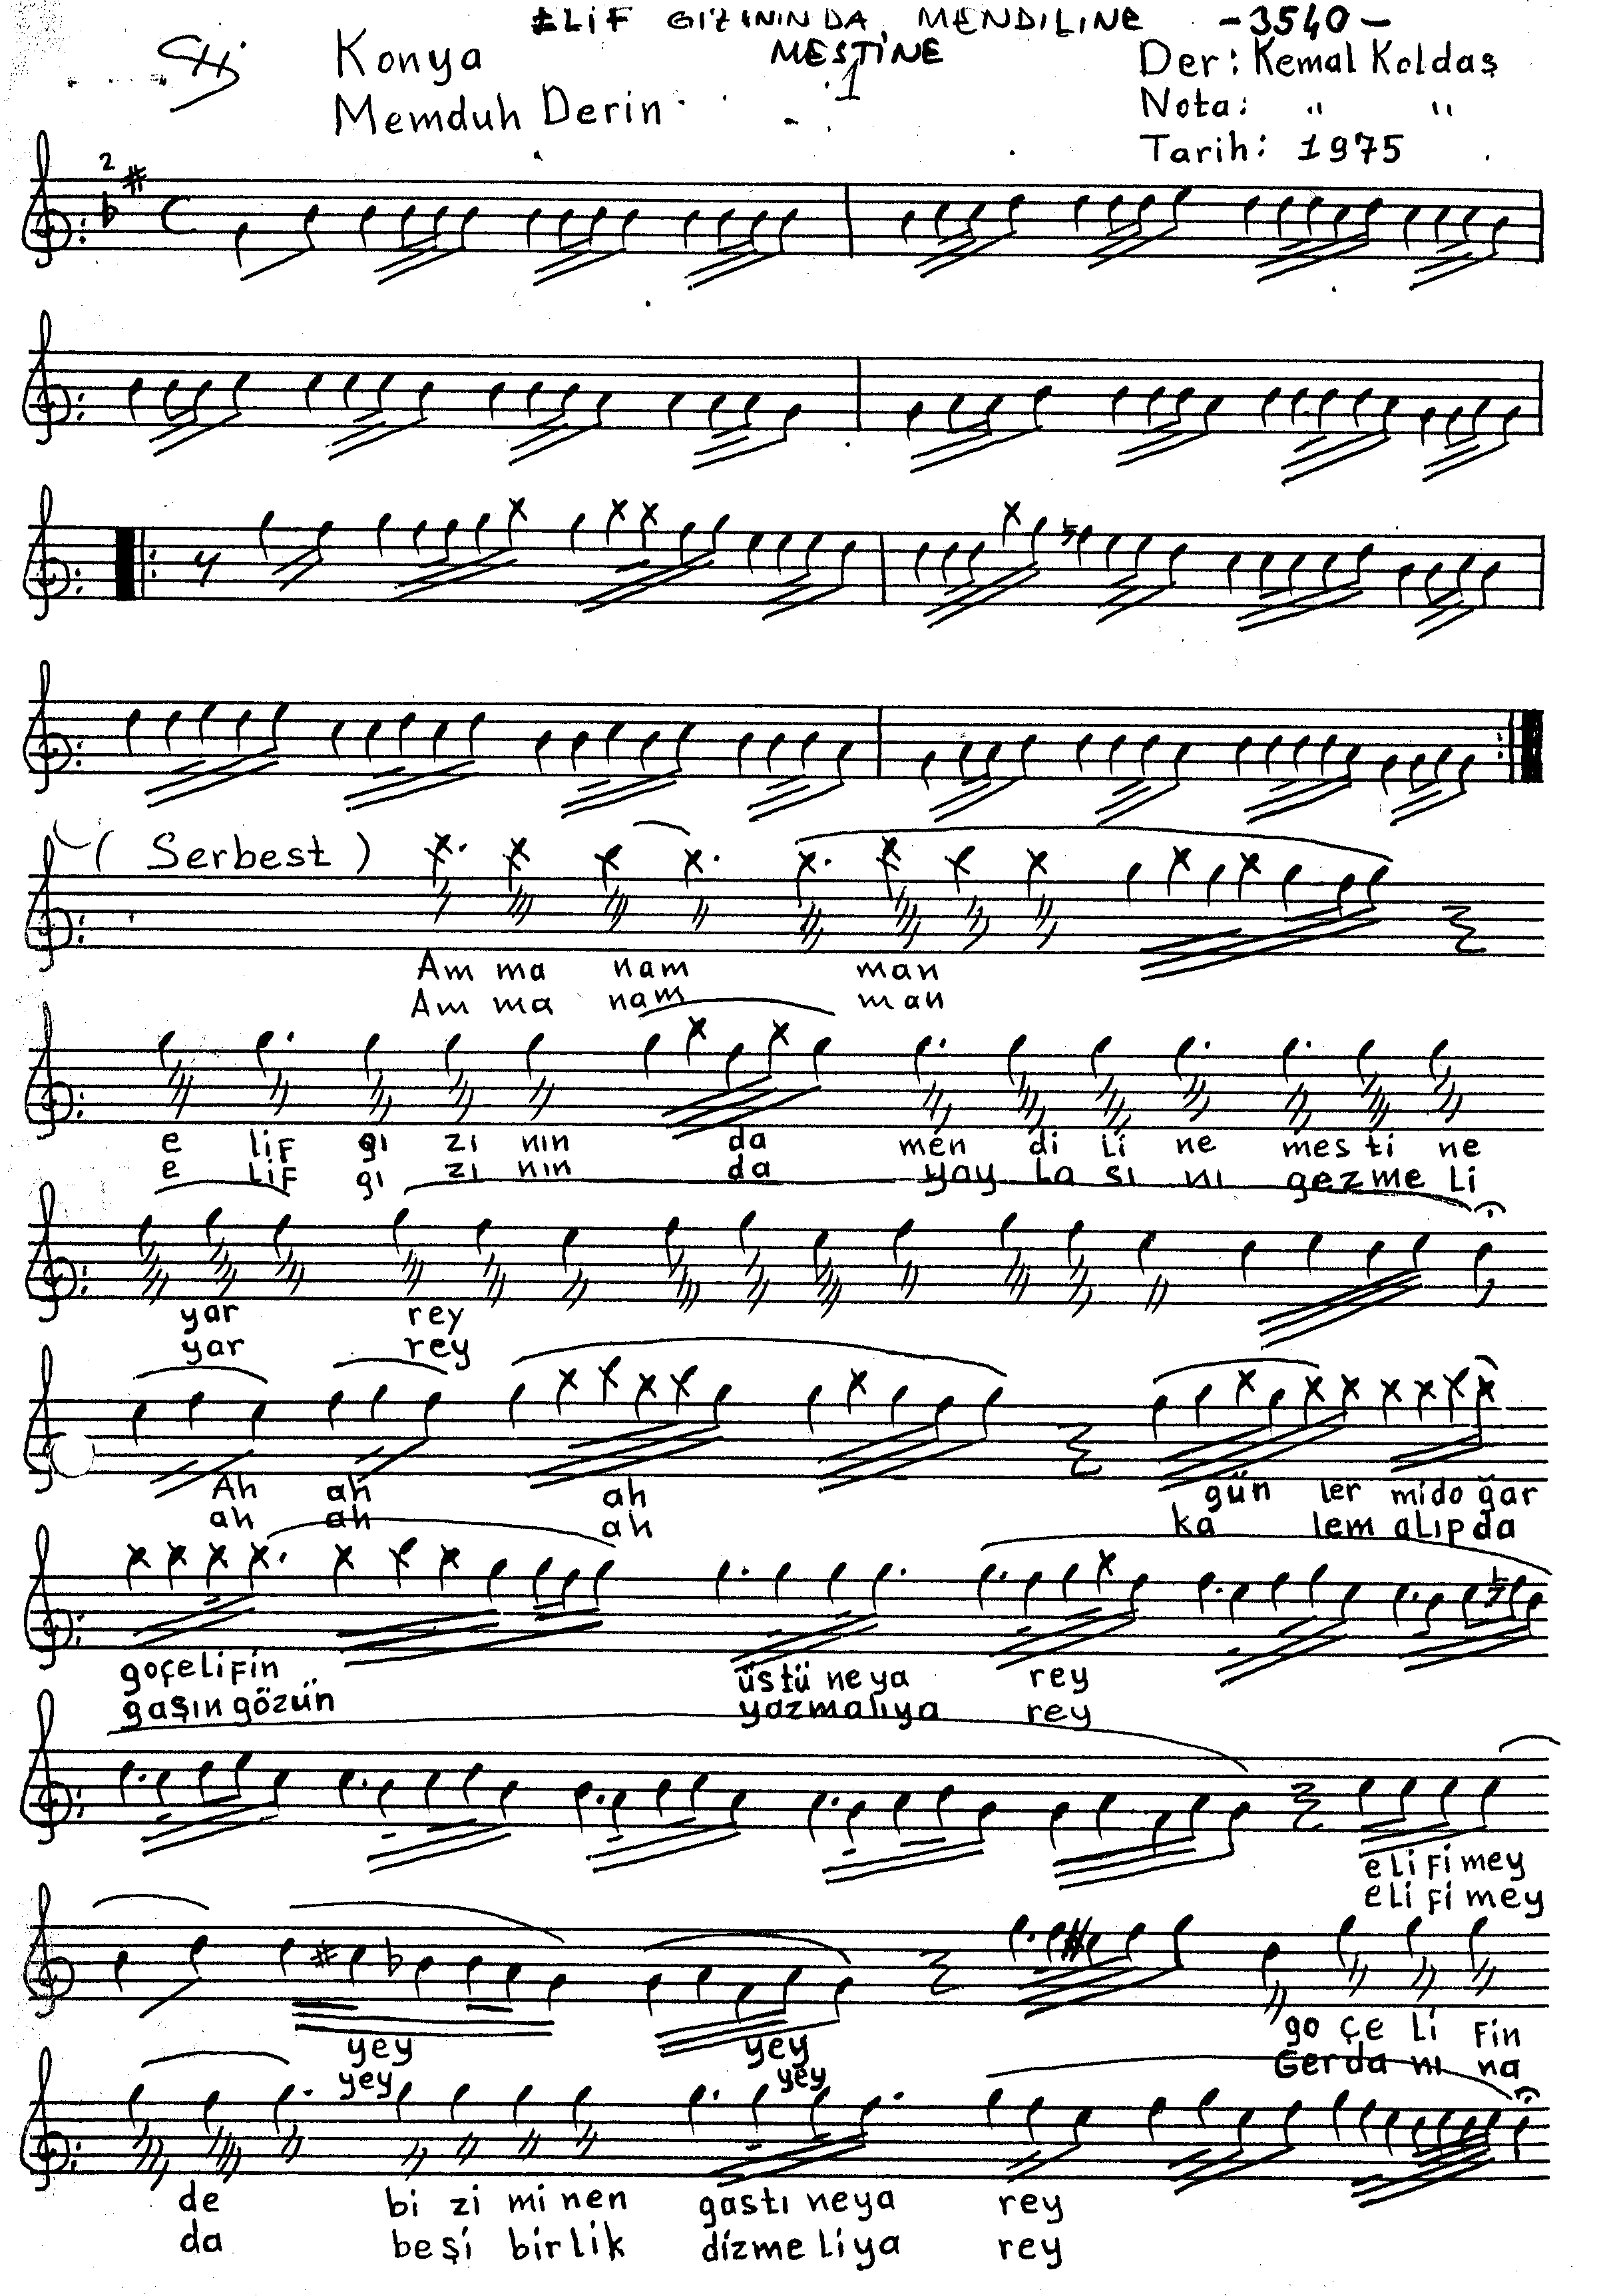 ELİF GIZININ DA MENDİLİNE -3540-
MESTİNE
Konya Der: Kemal Koldaş
1
Memduh Derin Nota: " "
Tarih: 1975
2
(Serbest)
Am ma nam man
Am ma nam man
e lif gı zı nın da men di li ne mes ti ne
e lif gı zı nın da yay la sı nı gezme li
yar rey
yar rey
Ah ah ah gün ler mido ğar
ah ah ah ka lem alıp da
goçelifin üstü ne ya rey
gaşın gözün yazmalıya rey
elifimey
elifimey
yey yey go çe li fin
yey yey Gerda nı na
de bi zi mi nen gastı neya rey
da beşi birlik dizme liya rey